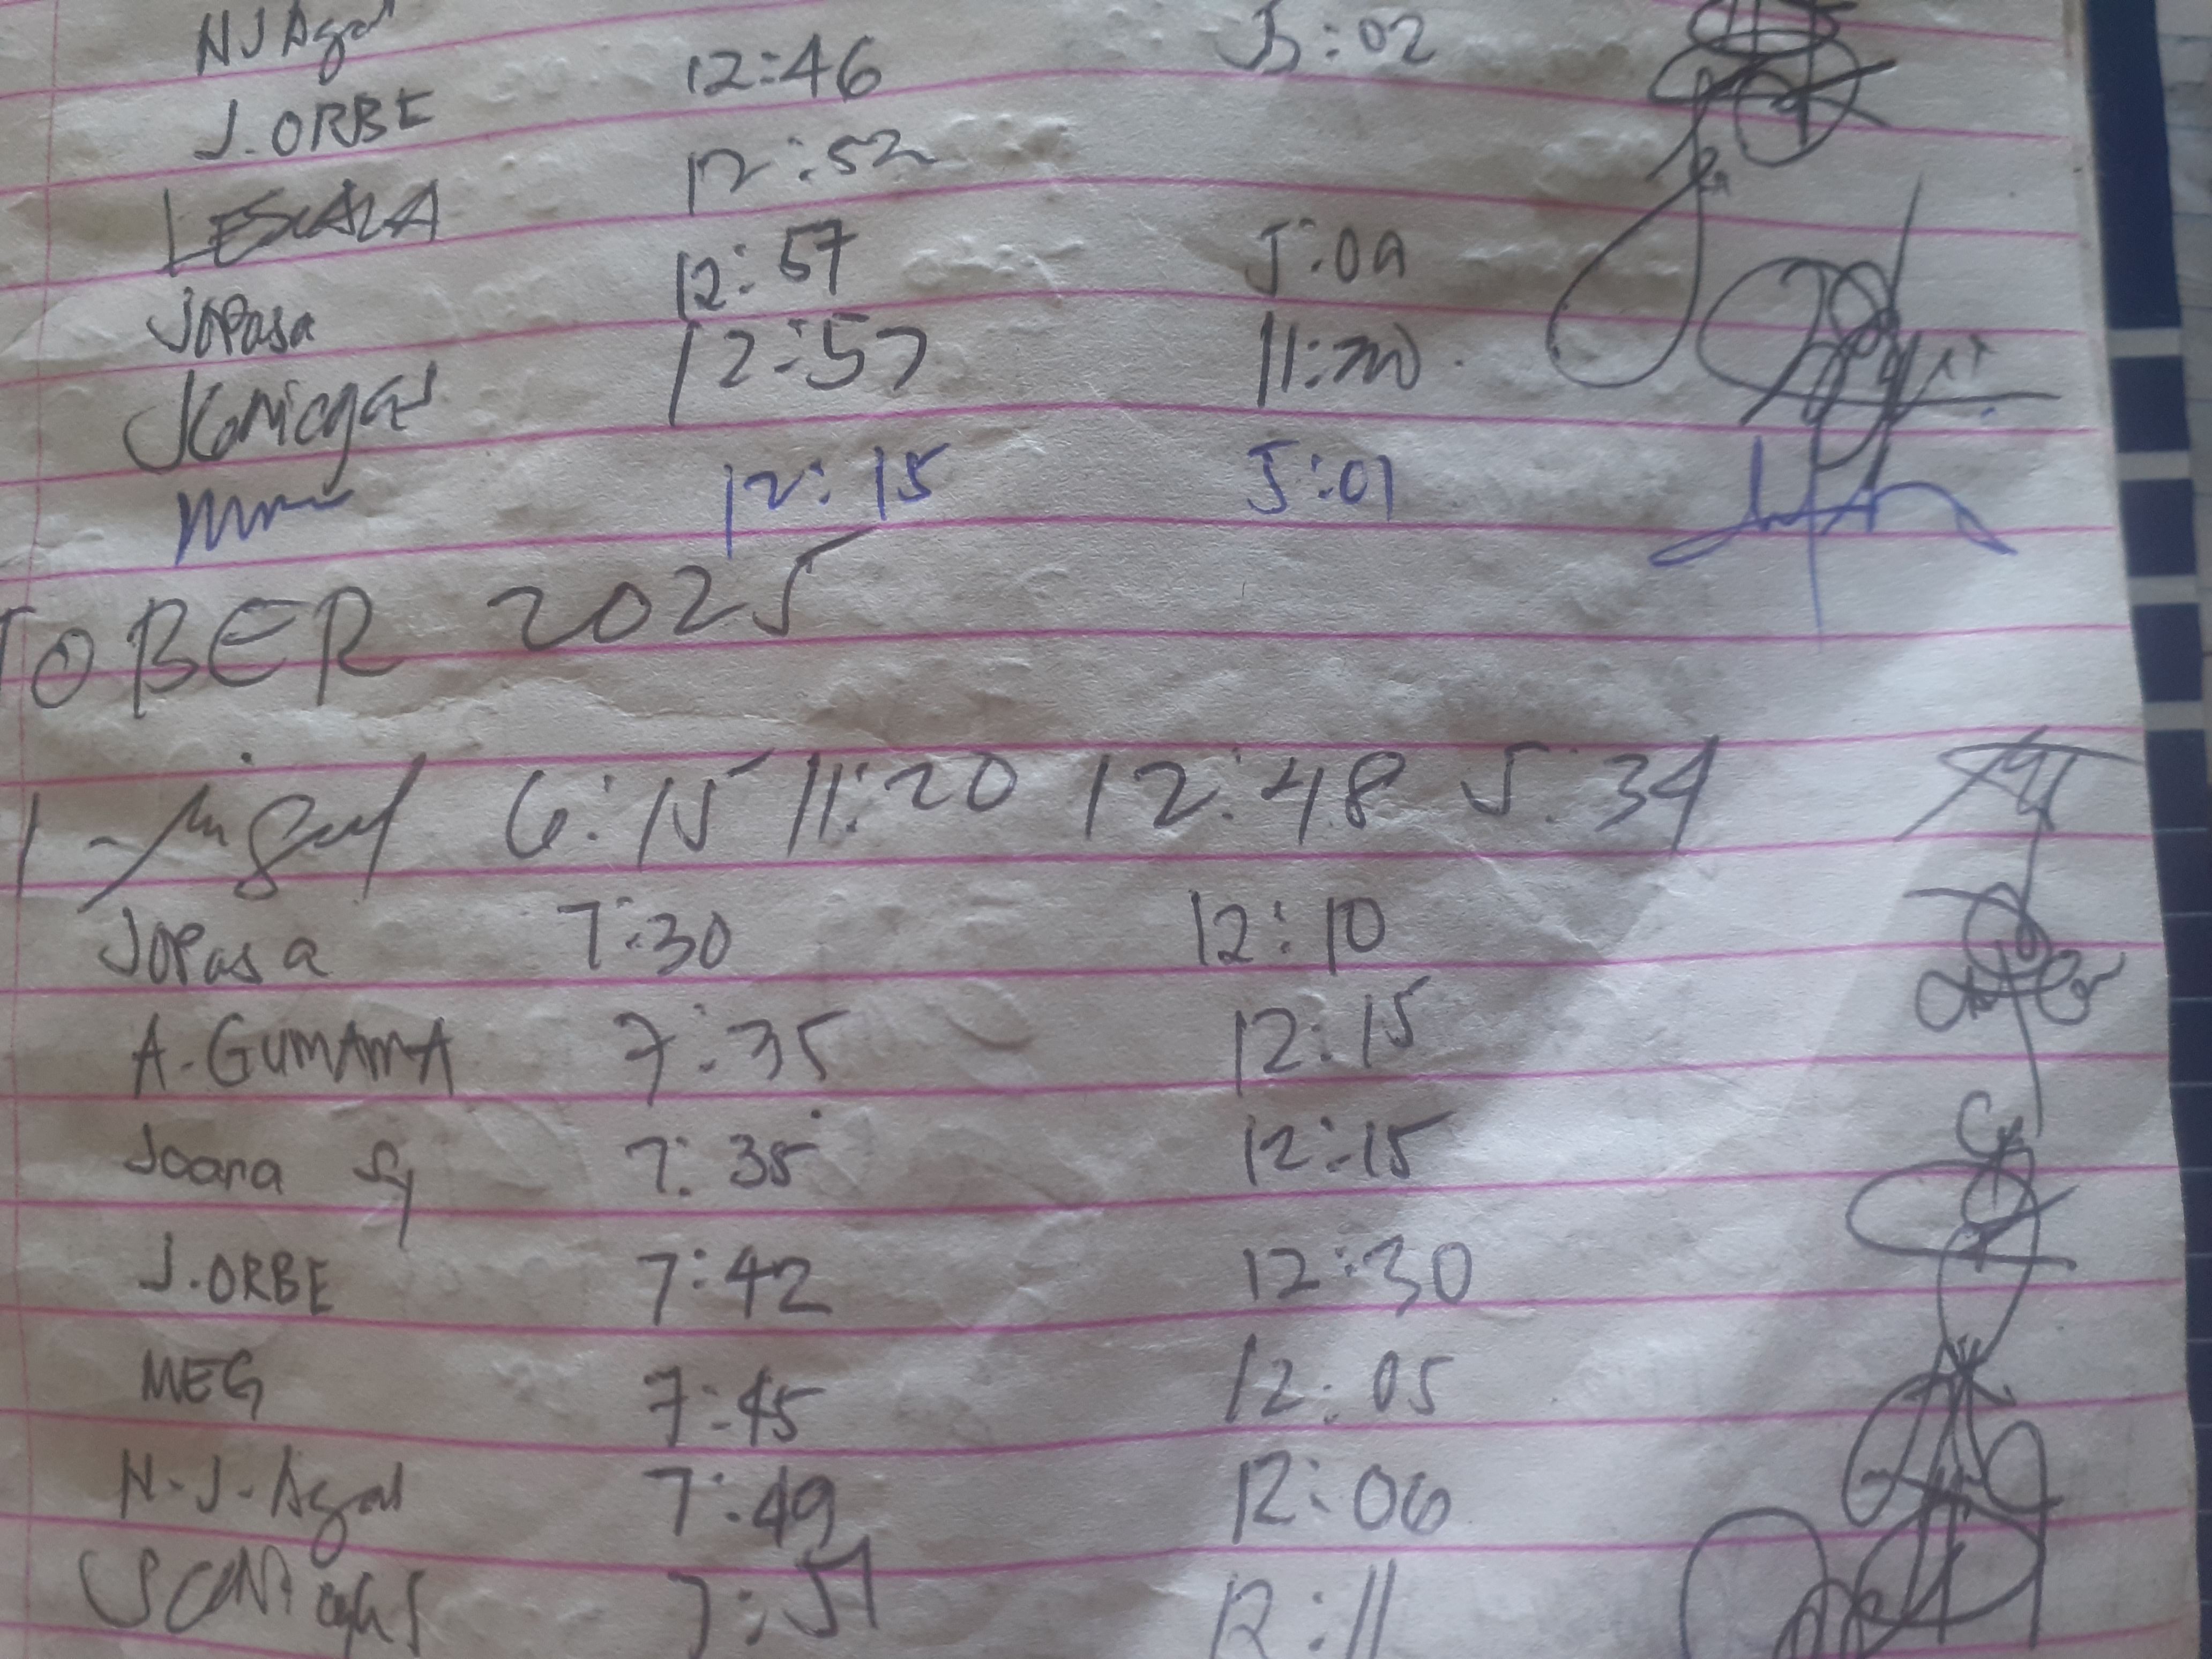 NJ Agal 5:02
J. ORBE 12:46
LESCALA 12:52
JOPasa 12:57 5:09
12:57 11:20
12:15 5:01
TOBER 2025
1 6:15 11:20 12:48 5:34
JOPasa 7:30 12:10
A. GUMAMA 7:35 12:15
Joana Sy 7:35 12:15
J. ORBE 7:42 12:30
MEG 7:45 12:05
N.J. Agal 7:49 12:06
7:51 12:11